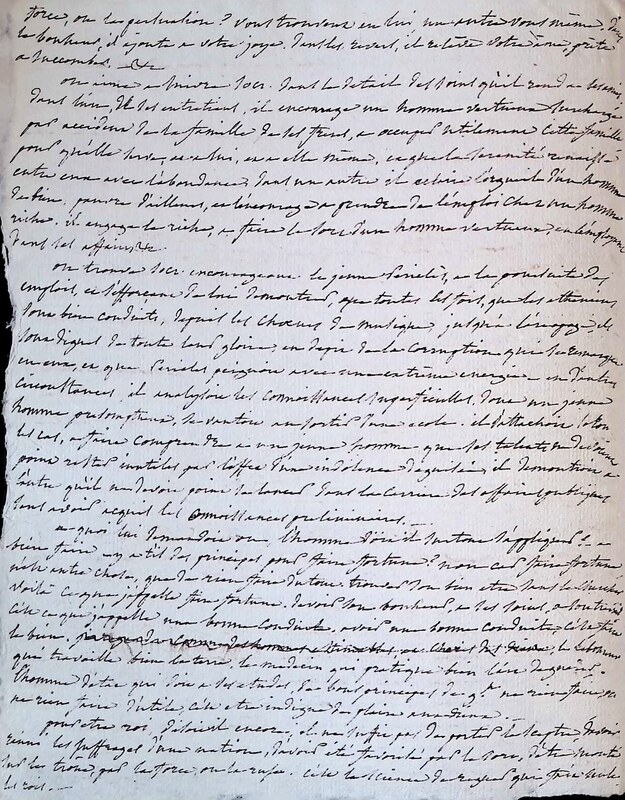 force, ou la persuasion? vous trouverez en lui un autre vous même. Dans
le bonheur, il ajoute a votre joye. Dans les revers, il releve votre ame, prète
a succomber. &c
on aime a suivre Socr. dans le detail des soins qu'il rend a ses amis,
dans l'un de ses entretiens, il encourage un homme vertueux surchargé
par accident de la famille de ses freres, a occuper utilement cette famille
pour qu'elle serve, et a lui, et a elle même, et que la serenité renaisse
entre eux avec l'abondance, dans un autre il eclaire l'orgueil d'un homme
de bien, pauvre d'ailleurs, et l'encourage a prendre de l'emploi chez un homme
riche. il engage le riche, a faire le sort d'un homme vertueux en l'employant
dans ses affaires &c
on trouve Socr. encourageant le jeune Periclès, a la poursuite des
emplois, et s'efforçant de lui demontrer, que toutes les fois, que les atheniens
sont bien conduits, depuis les choeurs de musique, jusqu'a l'areopage, ils
sont dignes de toute leur gloire, en depit de la corruption qui se remarque
en eux, et que Pericles peignoit avec une extrème energie — en d'autres
circonstances, il analysoit les connoissances superficielles, dont un jeune
homme presomptueux, se vantoit au sortir d'une ecole. il s'attachoit selon
les cas, a faire comprendre a un jeune homme que ses talents ne devoient
point rester inutiles par l'effet d'une indolence deguisée, il demontroit a
l'autre qu'il ne devoit point se lancer dans la carriere des affaires publiques
sans avoir acquis les connoissances preliminaires. —
a quoi lui demandoit on, l'homme doit il sur tout s'appliquer? — a
bien faire — y a t'il des principes pour faire fortune? non car faire fortune
n'est autre chose, que de rien faire du tout. trouver son bien etre sans le chercher
voilà ce que j'appelle faire fortune. devoir son bonheur, a ses soins, a son travail
c'est ce que j'appelle une bonne conduite. avoir une bonne conduite, c'est faire
le bien. les hommes estimables, et chers aux Dieux, le laboureur
qui travaille bien la terre, le medecin qui pratique bien l'art de guerir.
l'homme d'etat qui doit a ses etudes, de bons principes de gt. ne rien faire, ou
ne rien faire d'utile, c'est etre indigne de plaire aux Dieux —
pour etre roi, disoit il encore, il ne suffit pas de porter le sceptre, d'avoir
reunis les suffrages d'une nation, d'avoir eté favorisé par le sort, d'etre monté
sur les trône, par la force, ou la ruse. c'est la science de regner qui fait seule
les rois. —